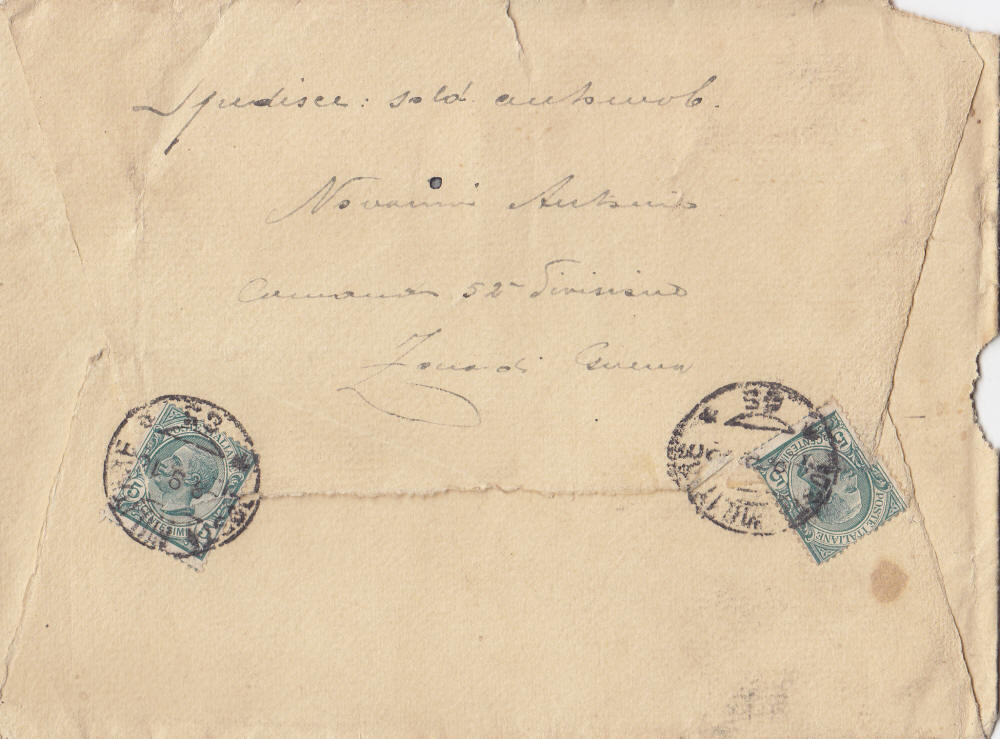 Spedisce: sold. automob.
Novarini Antonio
Comando 52ª Divisione
Zona di Guerra
POSTE ITALIANE
5 CENTESIMI 5
POSTE ITALIANE
5 CENTESIMI 5